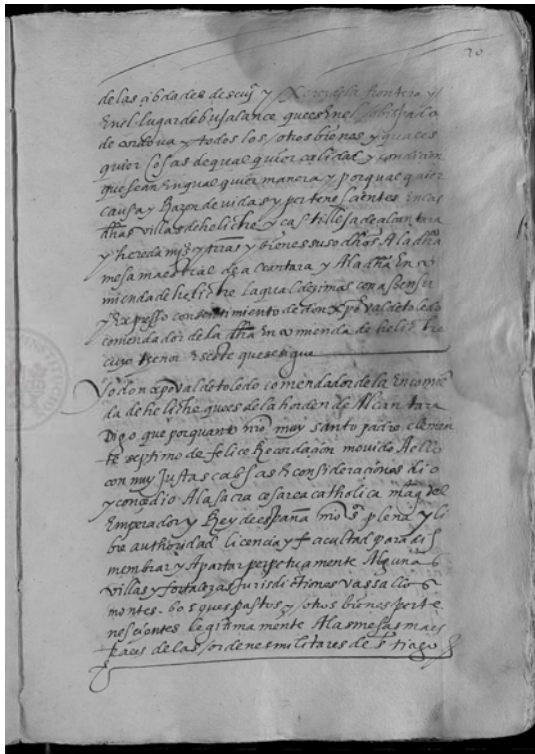 20
de las çibdades de sevjª y Xerez de la frontera y
En el lugar de bujalance que es En el obispado
de cordova y todos los otros bienes y quales
quier Cosas de qual quier calidad y condicion
que sean En qual quier manera y por qual quier
causa y Razon devidas y pertenesçientes En las
dhas villas de heliche y castilleja de alcantara
y heredamjºs y trras y bienes suso dhos A la dha
mesa maestral de alcantara y A la dha En co
mienda de heliche la qual dezimos con asensu
y Expresso consentimiento de don xpoval de toledo
comendador de la dha En comienda de heliche
cuyo thenor Es este que se sigue
Yo don xpoval de toledo comendador de la Encomie
da de heliche que es de la horden de Alcantara
Digo que por quanto nro muy santo padre clemen
te septimo de felice Recordaçion movido A ello
con muy Justas causas E consideraciones dio
y conçedio A la sacra cesarea catholica magd del
Emperador y Rey de españa nro sr plena y li
bre authoridad licencia y facultad para dis
membrar y Apartar perpetuamente Algunas
villas y fortalezas Jurisdictiones vassallos
montes bosques pastos y otros bienes perte
nesçientes legitimamente A las mesas maes
trales de las ordenes militares de Stiago